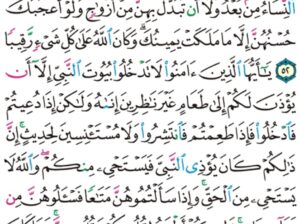 النِّسَاءُ مِنْ بَعْدُ وَلَا أَنْ تَبَدَّلَ بِهِنَّ مِنْ أَزْوَاجٍ وَلَوْ أَعْجَبَكَ
حُسْنُهُنَّ إِلَّا مَا مَلَكَتْ يَمِينُكَ وَكَانَ اللَّهُ عَلَى كُلِّ شَيْءٍ رَقِيبًا
٥٢ يَٰأَيُّهَا الَّذِينَ ءَامَنُوا لَا تَدْخُلُوا بُيُوتَ النَّبِيِّ إِلَّا أَنْ
يُؤْذَنَ لَكُمْ إِلَى طَعَامٍ غَيْرَ نَٰظِرِينَ إِنَىٰهُ وَلَٰكِنْ إِذَا دُعِيتُمْ
فَادْخُلُوا فَإِذَا طَعِمْتُمْ فَانْتَشِرُوا وَلَا مُسْتَـْٔنِسِينَ لِحَدِيثٍ إِنَّ
ذَٰلِكُمْ كَانَ يُؤْذِي النَّبِيَّ فَيَسْتَحْيِۦ مِنْكُمْ وَاللَّهُ لَا
يَسْتَحْيِۦ مِنَ الْحَقِّ وَإِذَا سَأَلْتُمُوهُنَّ مَتَٰعًا فَسْـَٔلُوهُنَّ مِنْ